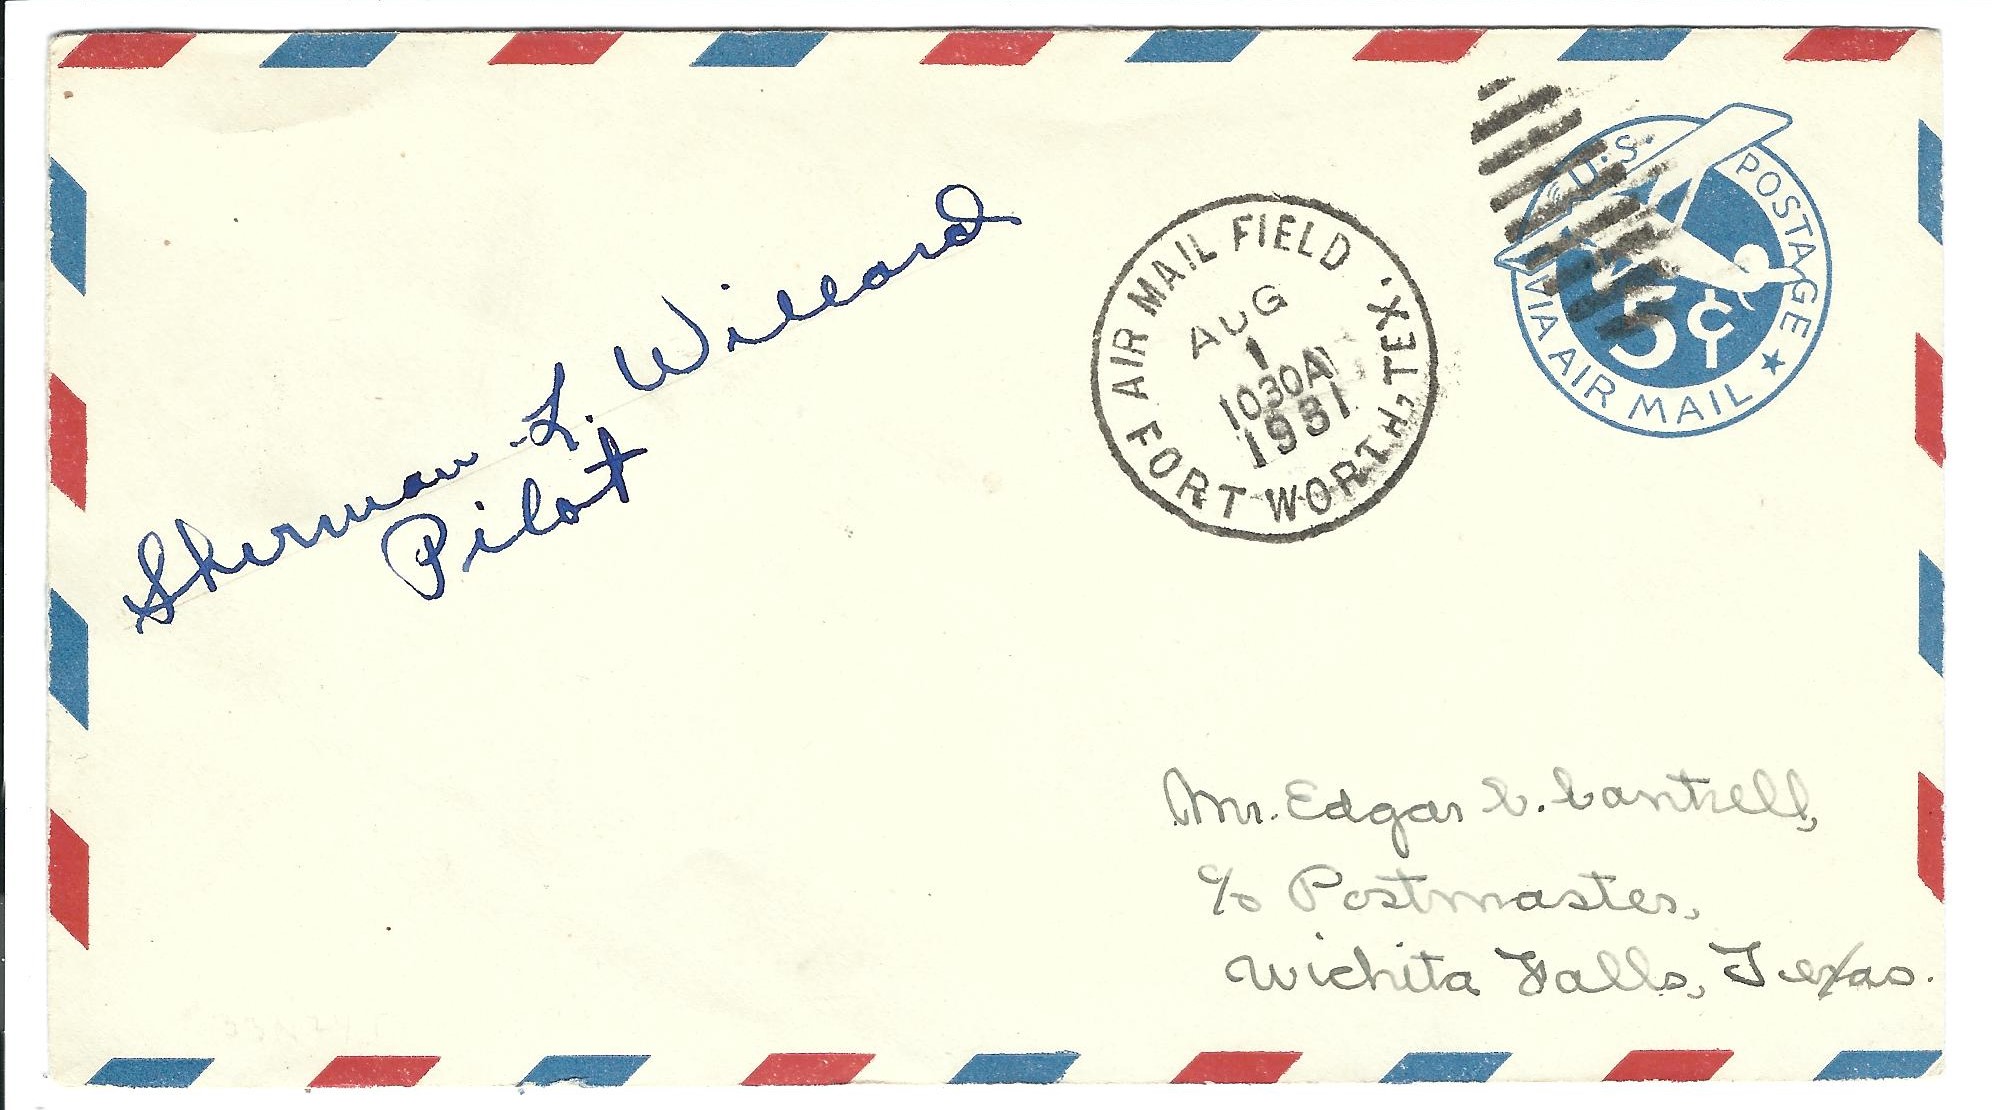 Sherman L. Willard
Pilot
AIR MAIL FIELD
AUG
1
1030A
1931
FORT WORTH, TEX.
U.S. POSTAGE
5¢
VIA AIR MAIL
Mr. Edgar C. Cantrell,
c/o Postmaster,
Wichita Falls, Texas.